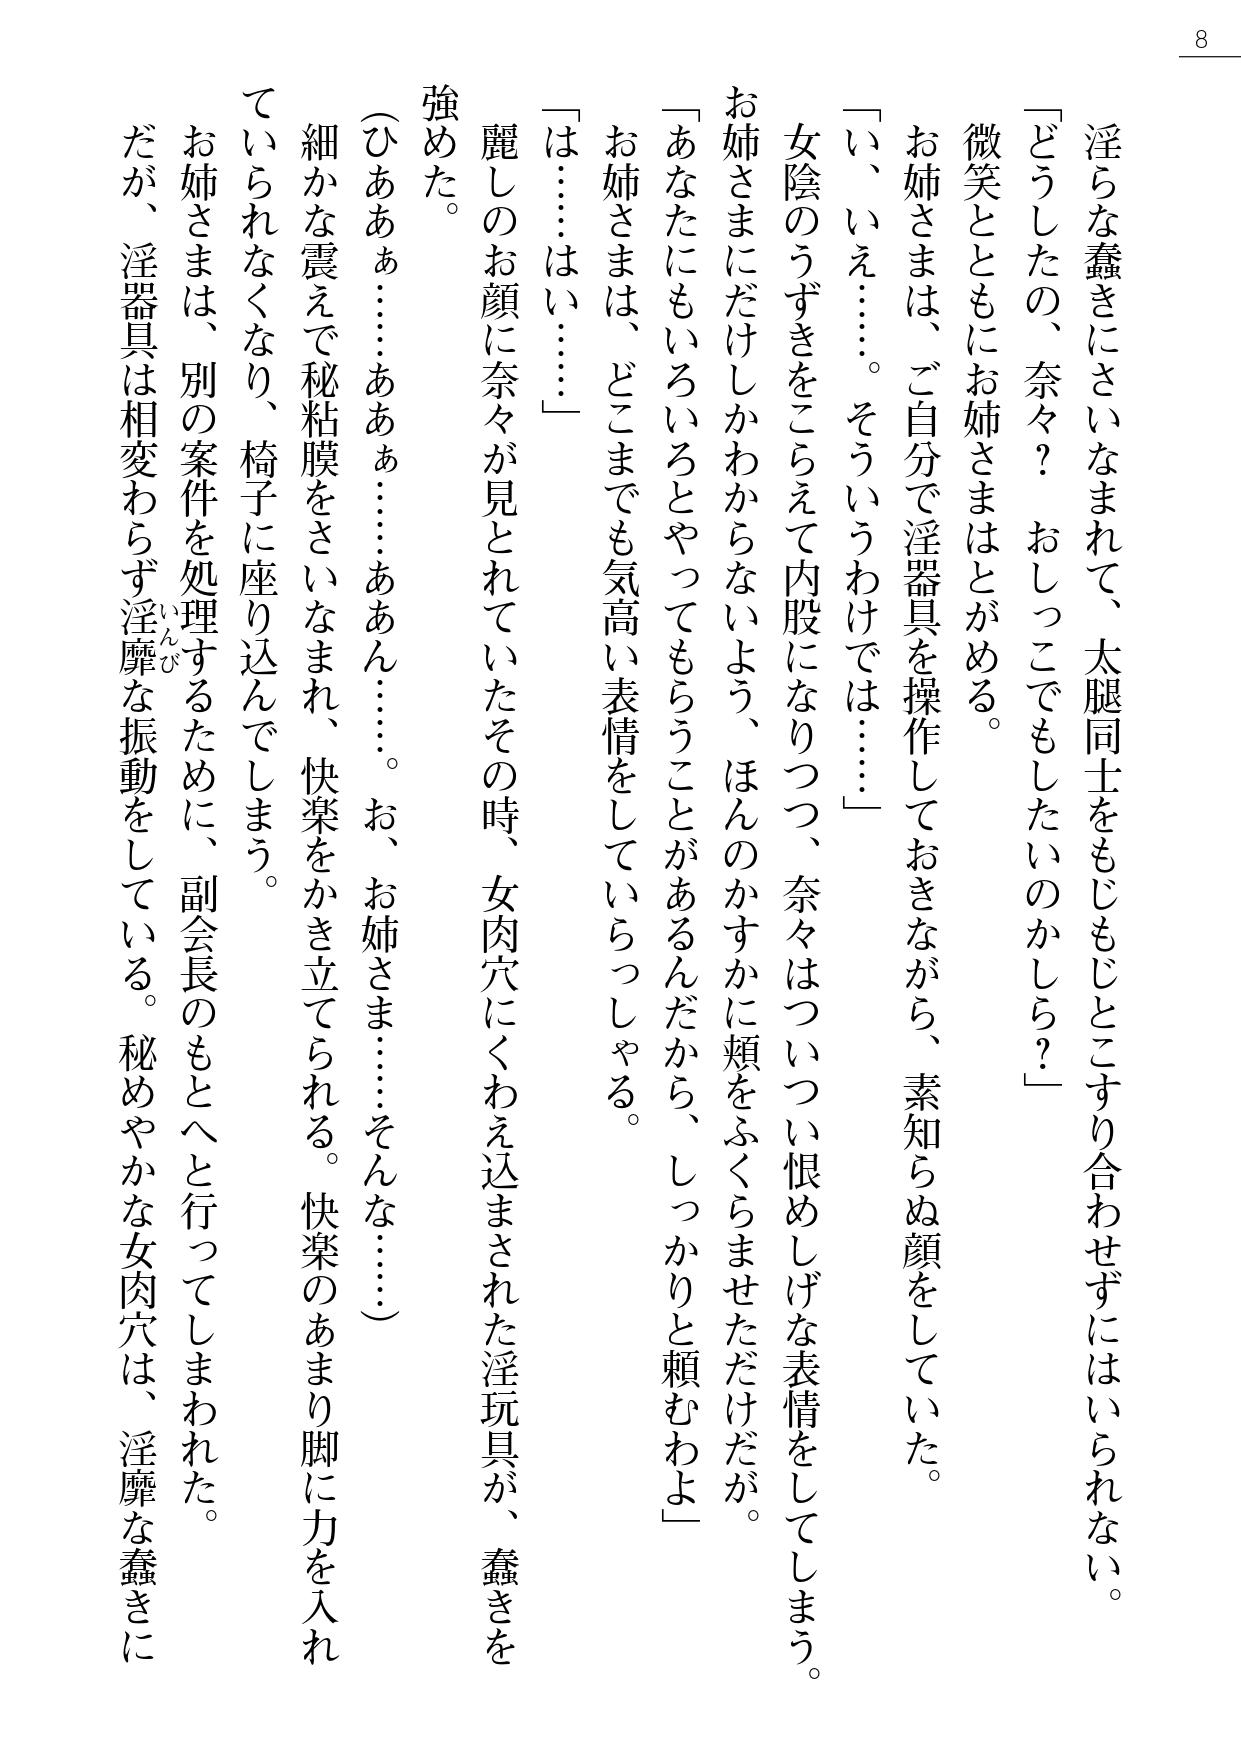 8
淫らな蠢きにさいなまれて、太腿同士をもじもじとこすり合わせずにはいられない。
「どうしたの、奈々？　おしっこでもしたいのかしら？」
微笑とともにお姉さまはとがめる。
お姉さまは、ご自分で淫器具を操作しておきながら、素知らぬ顔をしていた。
「い、いえ……。そういうわけでは……」
女陰のうずきをこらえて内股になりつつ、奈々はついつい恨めしげな表情をしてしまう。
お姉さまにだけしかわからないよう、ほんのかすかに頬をふくらませただけだが。
「あなたにもいろいろとやってもらうことがあるんだから、しっかりと頼むわよ」
お姉さまは、どこまでも気高い表情をしていらっしゃる。
「は……はい……」
麗しのお顔に奈々が見とれていたその時、女肉穴にくわえ込まされた淫玩具が、蠢きを
強めた。
（ひああぁ……ああぁ……ああん……。お、お姉さま……そんな……）
細かな震えで秘粘膜をさいなまれ、快楽をかき立てられる。快楽のあまり脚に力を入れ
ていられなくなり、椅子に座り込んでしまう。
お姉さまは、別の案件を処理するために、副会長のもとへと行ってしまわれた。
いんび
だが、淫器具は相変わらず淫靡な振動をしている。秘めやかな女肉穴は、淫靡な蠢きに